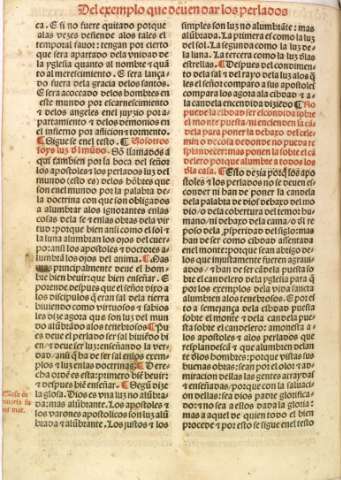 Del exemplo que deuen dar los perlados
ca. E si no fuere quitado porque
alas vezes defiende alos tales el
temporal fauor: tengan por cierto
que sera apartado dela vnidad de
la yglesia quanto al nombre & quã
to al merescimiento. E sera lança
do fuera dela gracia delos santos.
E sera acoceado delos hombres en
este mundo por escarnescimiento
& delos angeles enel juyzio por a-
partamiento & delos demonios en
el infierno por aflicion & tormento.
¶ Sigue se enel testo. ¶ Vosotros
soys luz dl mũdo. ¶ So llamados a
qui tambien por la boca del señor
los apostoles & los perlados luz del
mundo (esto es) delos hõbres que
son enel mundo por la palabra de
la doctrina con que son obligados
a alumbrar alos ignorantes enlas
cosas dela fe & enlas obras dela vir
tud: porque bien ansi como el sol &
la luna alumbran los ojos del cuer
po: ansi los apostoles & doctores a-
lumbrã los ojos del anima. ¶ Mas
principalmente deue el hom-
bre bien beuir: que bien enseñar. E
porende despues que el señor dixo a
los discipulos q̃ eran sal dela tierra
biuiendo como virtuosos & sabios
les dize agora que son luz del mun
do alũbrãdo alos tenebrosos ¶ Pu
es deue el perlado ser sal biuiẽdo bi
en/ & deue ser luz: enseñando la ver-
dad: ansi q̃ ha de ser sal enlos exem-
plos & luz enlas doctrinas. ¶ Dere-
cha ordẽ es esta: primero biẽ beuir:
& despues biẽ enseñar. ¶ Segũ dize
la glosa. Dios es vna luz no alũbra-
da: mas alũbrante. Los apostoles &
los varones apostolicos son luz alũ
brada & alũbrante. Los justos & los
simples son luz no alumbrãte: mas
alũbrada. La primera es como la luz
del sol. La segunda como la luz de-
la luna. La tercera como la luz dlas
estrellas. ¶ Despues del condimen-
to dela sal & del rayo dela luz alos q̃
les el señor comparo a sus apostoles
compara los agora ala cibdad & a
la candela encendida diziẽdo ¶ No
puede la cibdad ser escondida sobre
el monte puesta/ ni encienden la cã
dela para poner la debaxo del cele-
min o de cosa donde no pueda re
splandescer: mas ponen la sobre el cã
delero porque alumbre a todos los
dla casa. ¶ Esto dezia porq̃ los apo
stoles & los perlados no se deuen es
conder ni han de poner la candela
dela palabra de dios debaxo del mo
dio/ o dela cobertura del temor hu-
mano/ ni debaxo dela cama/ o del re
poso dela prosperidad del siglo: mas
han de ser como cibdad assentada
enel monte: porque sean abrigo de-
los que injustamente fueren agraui-
ados/ & han de ser cãdela puesta so
bre el candelero dela yglesia para q̃
por los exemplos dela vida sancta
alumbren alos tenebrosos. E por ẽ
to a semejança dela cibdad puesta
sobre el monte & dela candela pue-
sta sobre el candelero: amonesta a
los apostoles & alos perlados que
resplandescã & que alumbren delan
te dlos hombres: porque vistas sus
buenas obras: sean por el olor & ad-
miracion dellas las gentes atraydas
& enseñadas/ porque con la saluaci-
on dellas: sea dios padre glorifica-
do: & no sea a ellos dada la gloria:
mas a aquel de quien todo el bien
procede & por esto se sigue enel testo